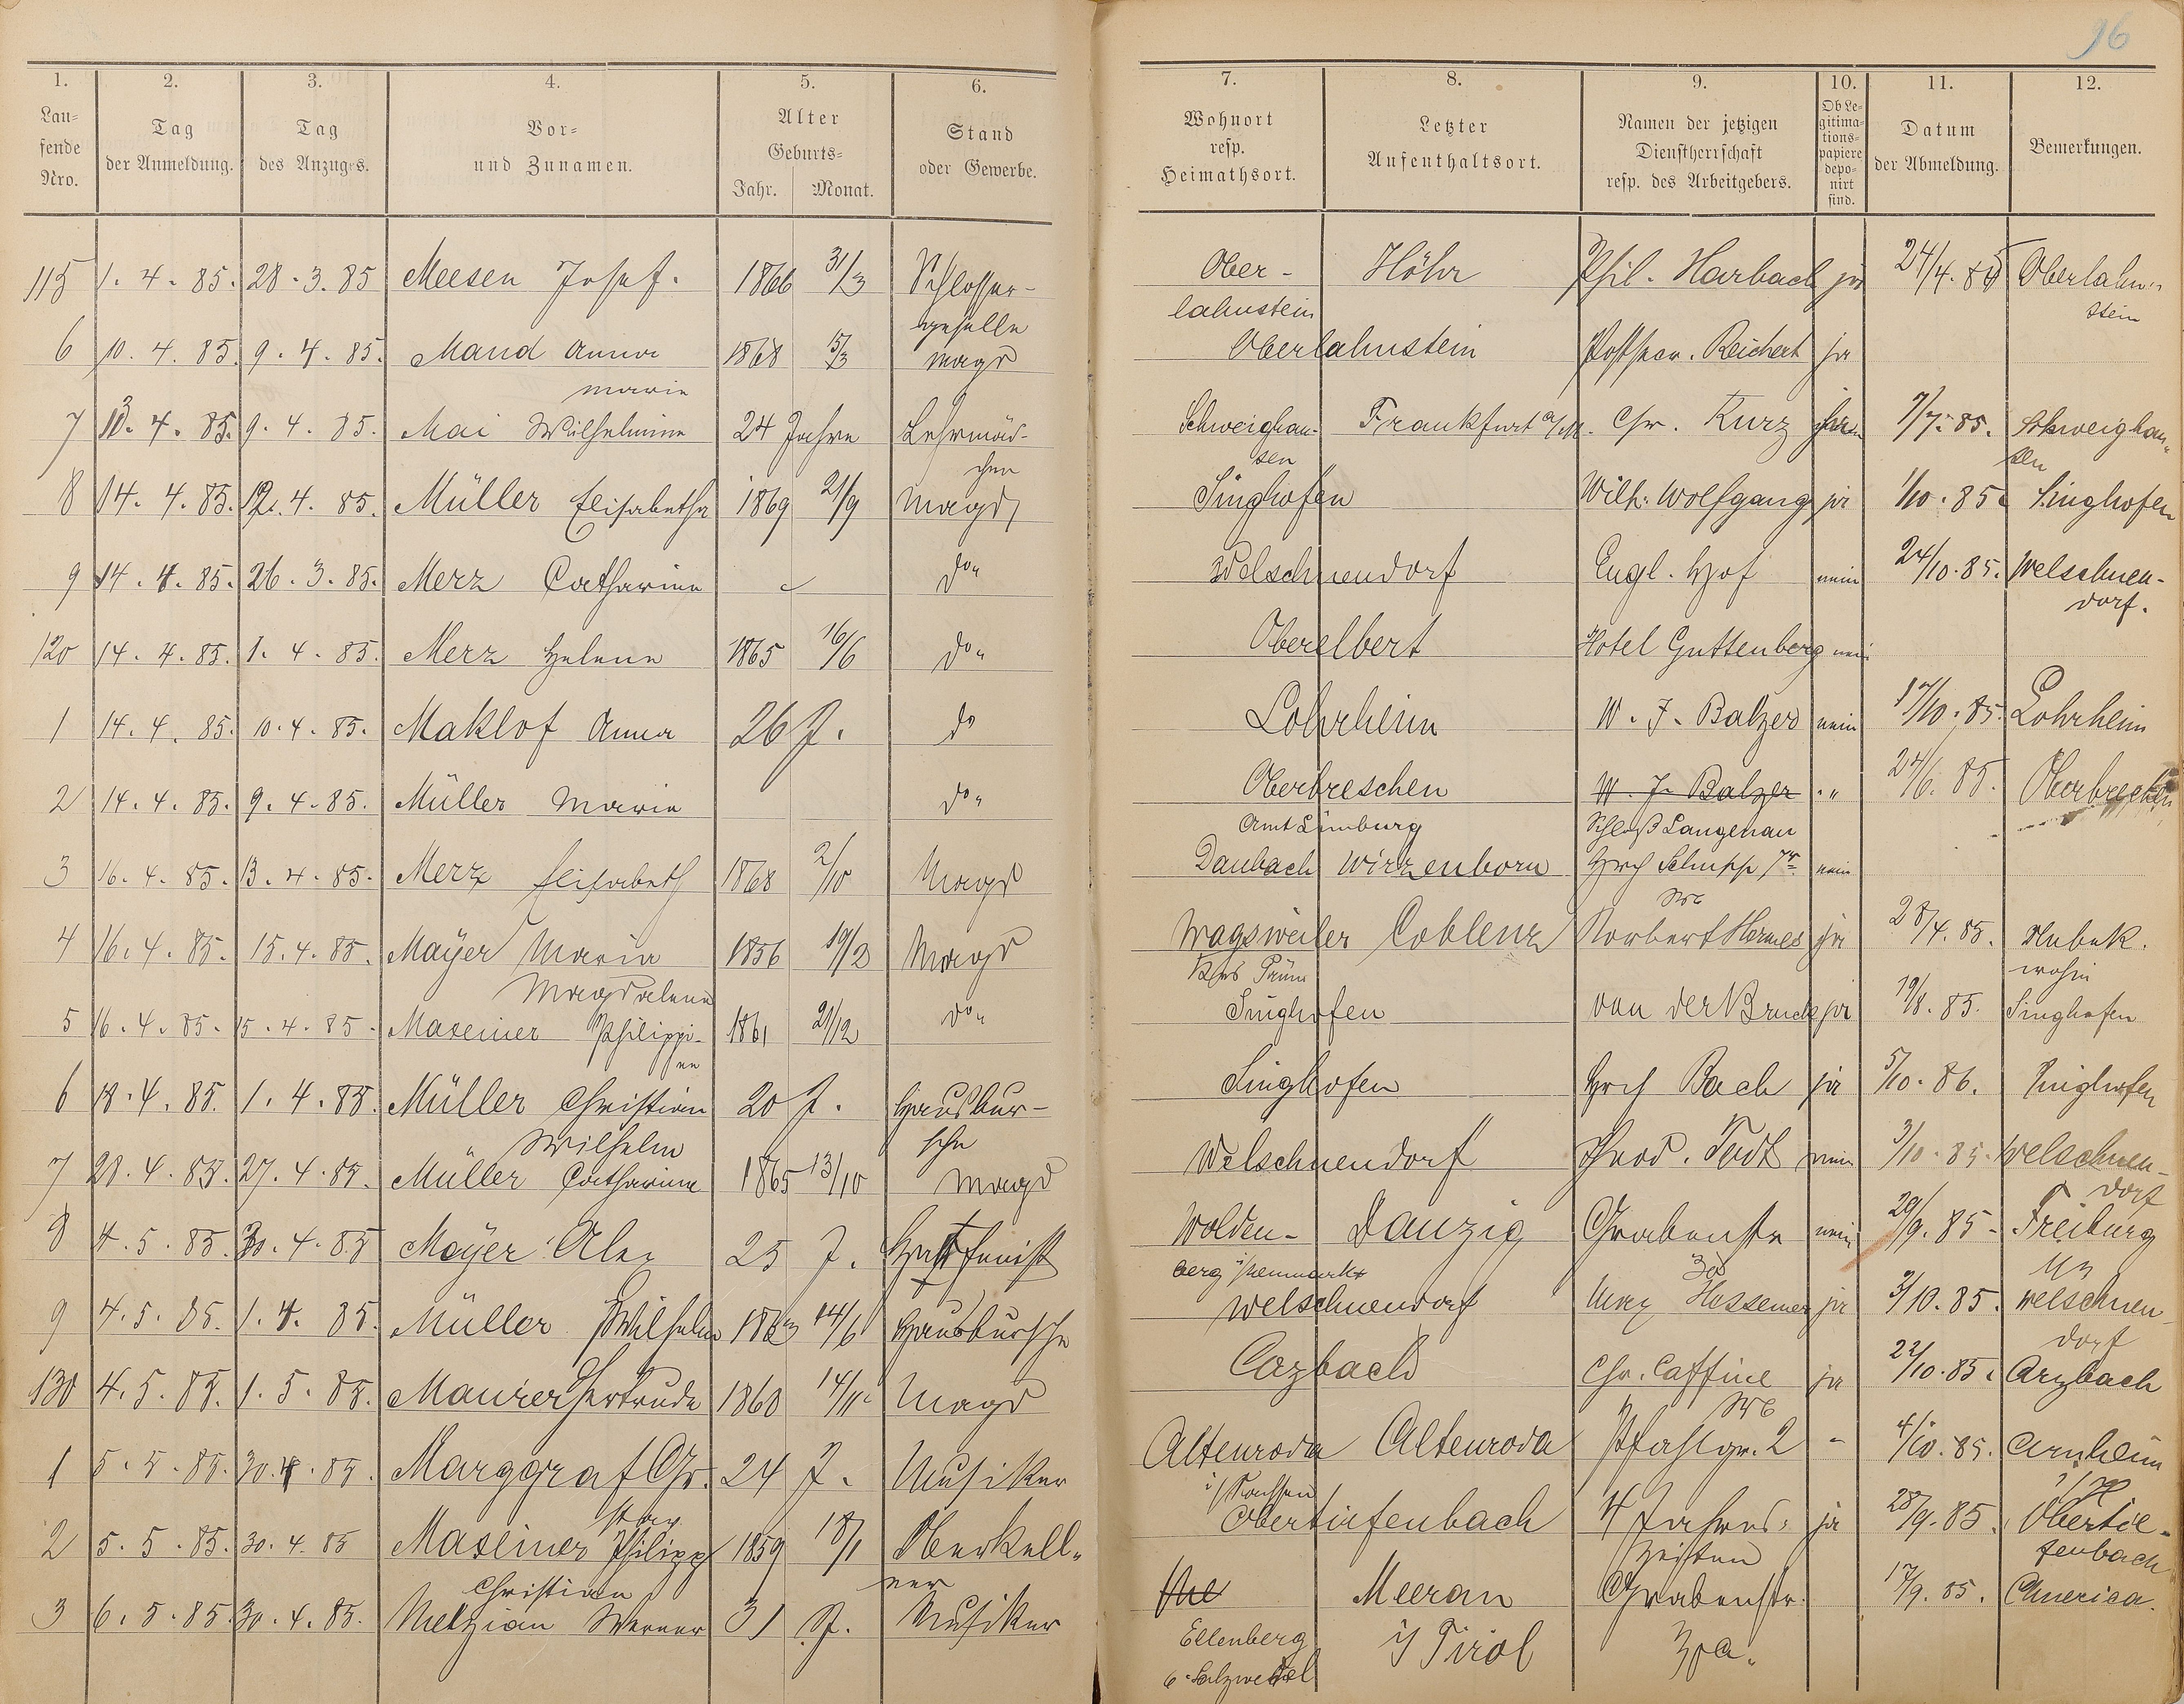 96
1. 2. 3. 4. 5. 6. 7. 8. 9. 10. 11. 12.
Lau-
fende
Nro.
Tag
der Anmeldung.
Tag
des Anzuges.
Vor-
und Zunamen.
Alter
Geburts-
Jahr. Monat.
Stand
oder Gewerbe.
Wohnort
resp.
Heimathsort.
Letzter
Aufenthaltsort.
Namen der jetzigen
Dienstherrschaft
resp. des Arbeitgebers.
Ob Le-
gitima-
tions-
papiere
depo-
nirt
sind.
Datum
der Abmeldung.
Bemerkungen.
115 1. 4. 85. 28. 3. 85 Meesen Josef. 1866 31/3 Schlosser- Ober- Höhr Phil. Harbach ja 24/4. 85 Oberlahn-
geselle lahnstein stein
6 10. 4. 85. 9. 4. 85. Mand Anna 1868 Magd Oberlahnstein Reichert ja
Marie
7 4. 85. 9. 4. 85. Mai Wilhelmine 24 Jahre Lehrmäd- Schweighau- Frankfurt a/M. Chr. Kurz 7/7. 85. Schweighau-
chen sen sen
8 14. 4. 85. 12. 4. 85. Müller Elisabetha 1869 21/9 Magd Singhofen Wilh. Wolfgang ja 1/10. 85. Singhofen
9 14. 4. 85. 26. 3. 85. Merz Catharine do Welschneudorf Engl. Hof nein 24/10. 85. Welschneu-
dorf.
120 14. 4. 85. 1. 4. 85. Merz Helene 1865 16/6 do Oberelbert Hotel Guttenberg nein
1 14. 4. 85. 10. 4. 85. Maklof Anna 26 J. do Lohrheim W. J. Balzer nein 17/10. 85. Lohrheim
2 14. 4. 85. 9. 4. 85. Müller Marie do Oberbreschen W. J. Balzer " 24/6. 85. Oberbrechen
Amt Limburg Schloß Langenau
3 16. 4. 85. 13. 4. 85. Merz Elisabeth 1868 2/10 Magd Daubach Wirzenborn Hrch Schupp nein
4 16. 4. 85. 15. 4. 85. Mayer Maria 1856 19/2 Magd Wagsweiler Coblenz Norbert Hermes ja 28/4. 85. Unbek.
Magdalena Prüm wohin
5 16. 4. 85. 15. 4. 85. Maseiner Philippi- 1861 21/12 do Singhofen von der Bruck ja 19/8. 85. Singhofen
ne
6 18. 4. 85. 1. 4. 85. Müller Christian 20 J. Hausbur- Singhofen Hrch Bach ja 5/10. 86. Singhofen
Wilhelm sche
7 28. 4. 85. 27. 4. 85. Müller Catharine 1865 13/10 Magd Welschneudorf Theod. Todt nein 3/10. 85. Welschneu-
dorf
8 4. 5. 85. 30. 4. 85 Mayer Alex 25 J. Wolden- Danzig Grabenstr nein 29/9. 85. Freiburg
berg
9 4. 5. 85. 1. 4. 85. Müller Wilhelm 14/6 Hausbursche Welschneudorf Max Hessemer ja 3/10. 85. Welschneu-
dorf
130 4. 5. 85. 1. 5. 85. Maurer Gertrude 1868 14/11 Magd Chr. Caffine ja 22/10. 85. Arzbach
1 5. 5. 85. 30. 4. 85. Marggraf Chr. 24 J. Musiker Altenroda Altenroda Pfahlgr. 2 - 4/10. 85. Arnheim
2 5. 5. 85. 30. 4. 85 Maseiner Philipp 1859 18/1 Oberkell- Obertiefenbach 4 Jahres- ja 28/9. 85. Obertie-
Christian ner zeiten fenbach
3 6. 5. 85. 30. 4. 85. Metzian Werner 31 J. Musiker Meeran Grabenstr. 17/9. 85. America.
Ellenberg i/ Tirol
b. Salzwedel